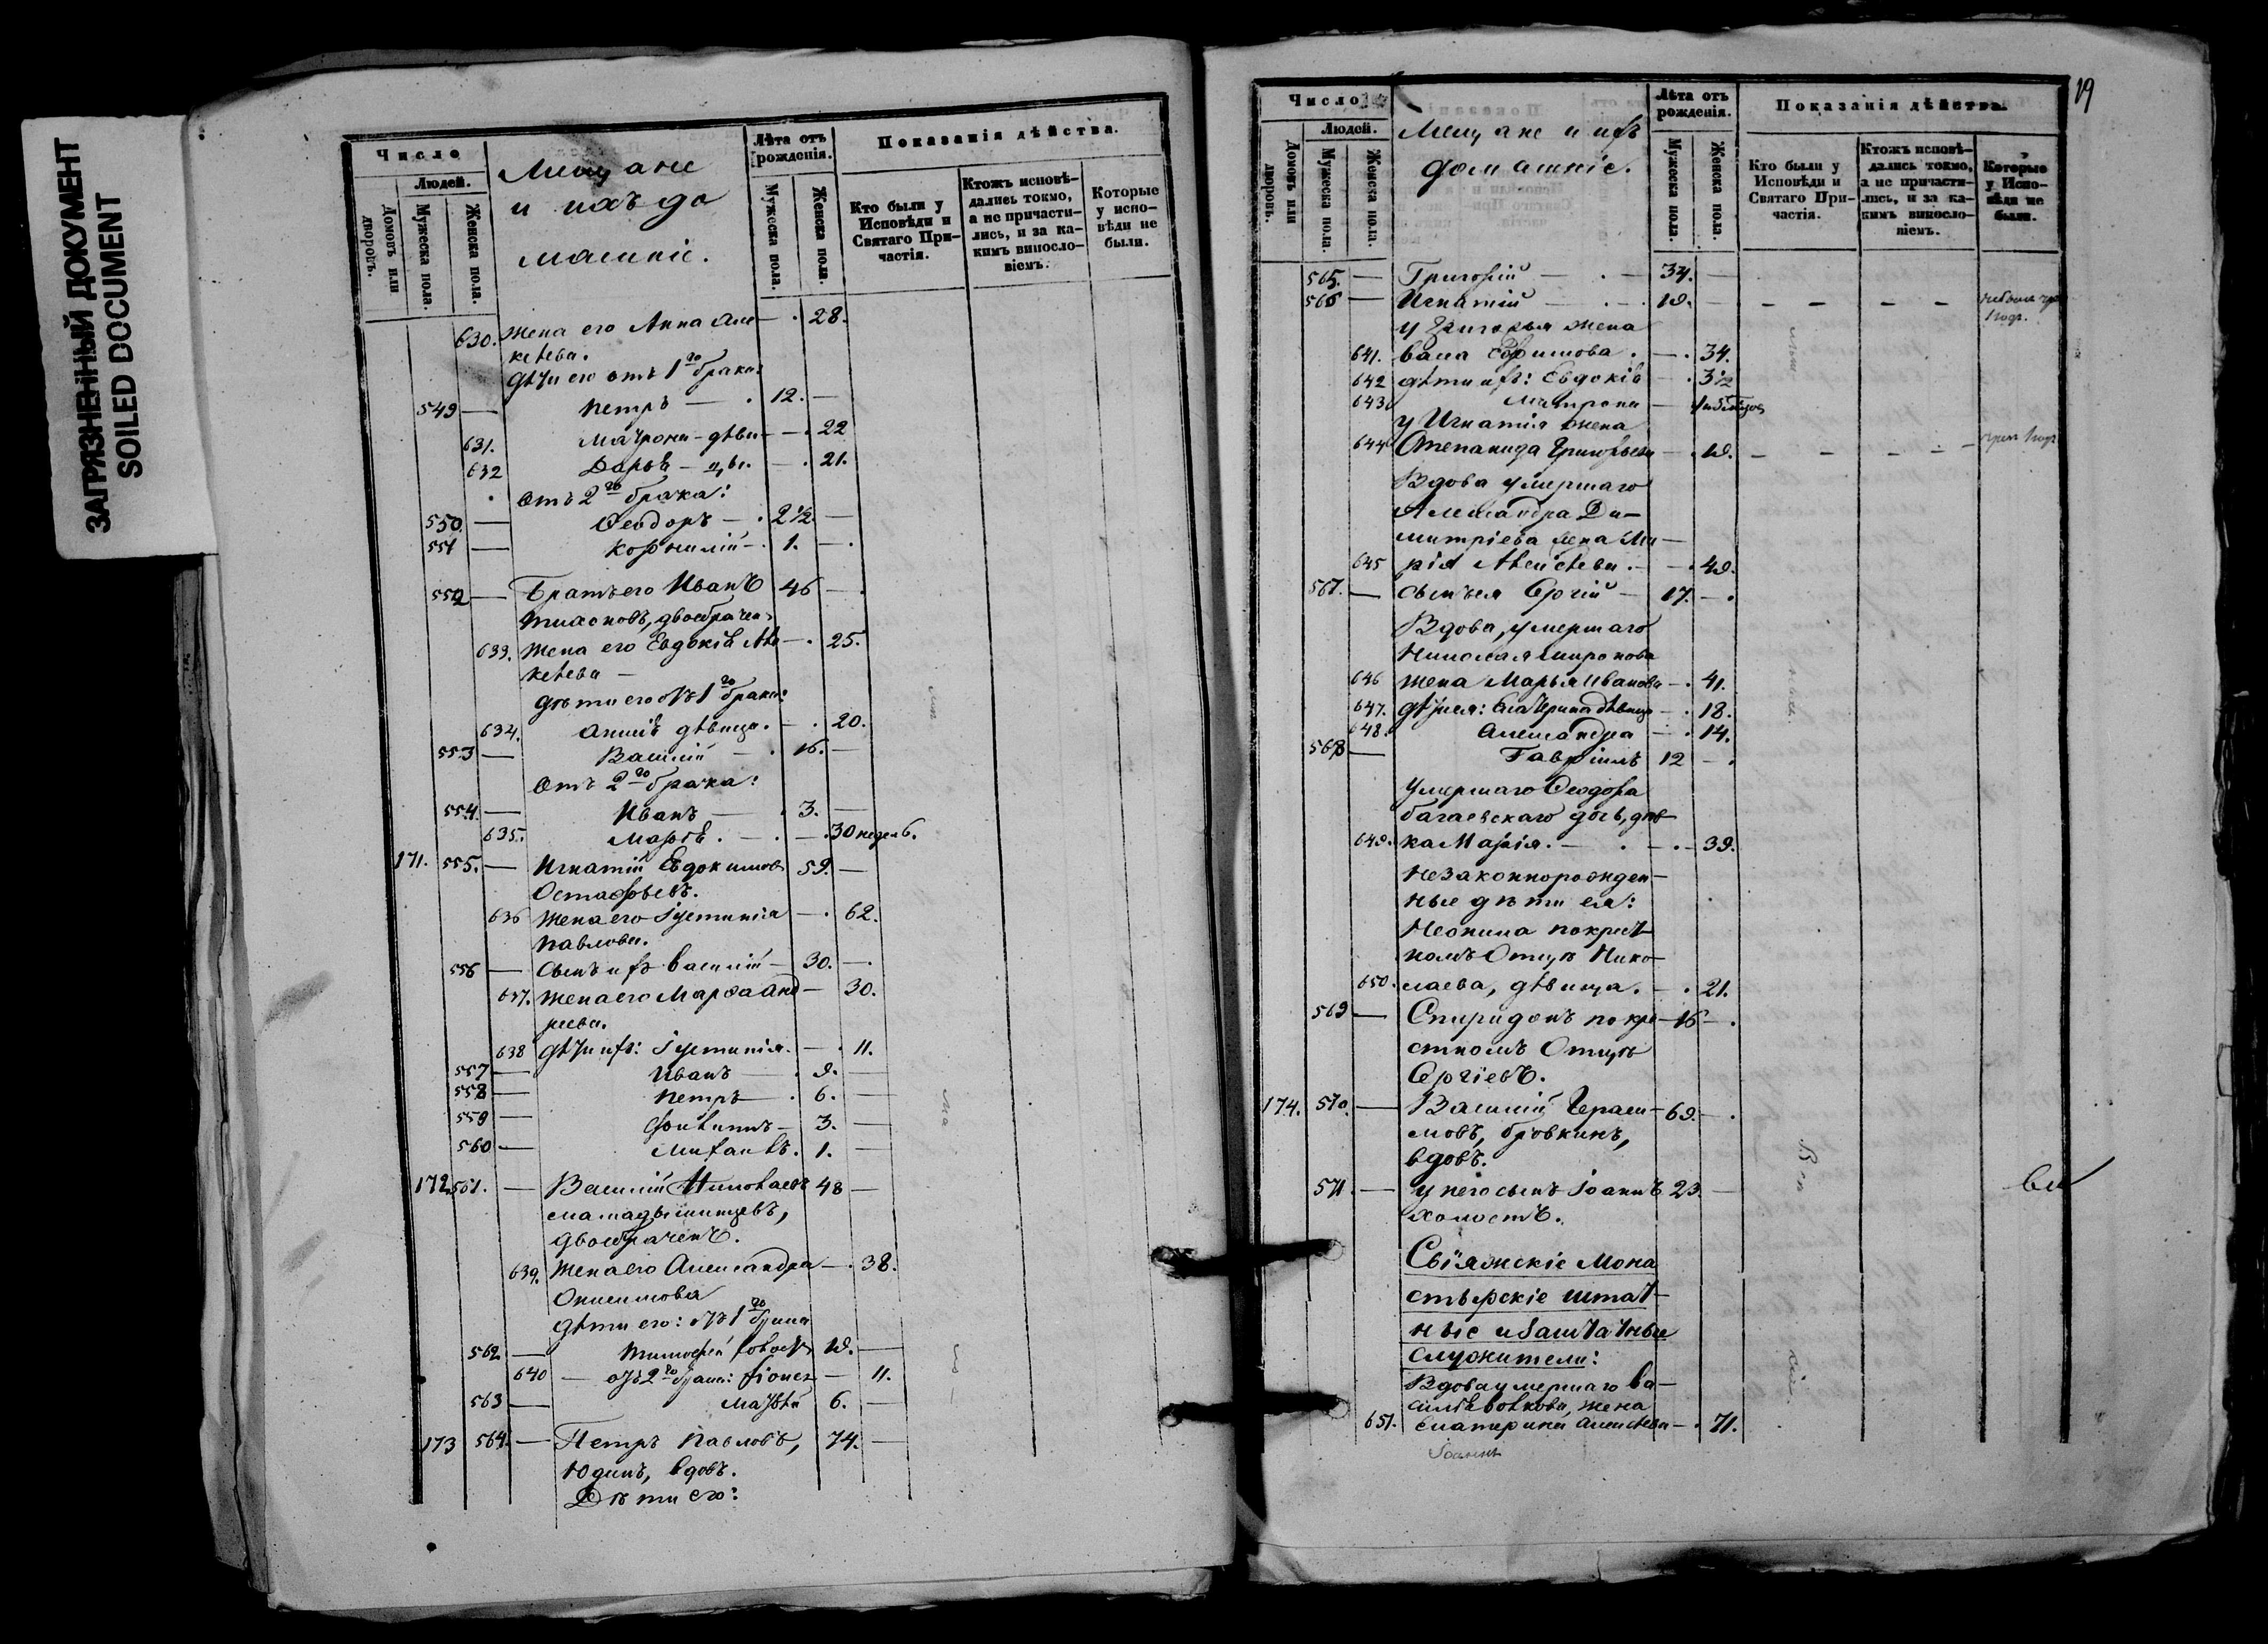 ЗАГРЯЗНЕННЫЙ ДОКУМЕНТ
SOILED DOCUMENT
Число
Людей.
Домовъ или дворовъ.
Мужеска пола.
Женска пола.
Мещане
и ихъ до
машніе.
Лѣта отъ рожденія.
Мужеска пола.
Женска пола.
Показанія дѣйства.
Кто были у Исповѣди и Святаго Причастія.
Ктожъ исповѣдались токмо, а не причастились, и за какимъ винословіемъ.
Которые у исповѣди не были.
630. Жена его Анна Але — 28.
ксѣева.
дѣти его отъ 1го брака:
549 — Петръ — 12. —
631. Матрона — дѣви — 22
632 Дарья — — 21.
отъ 2го брака:
550. — Ѳеодоръ — 2 1/2 —
551 — Корнилій — 1. —
552 — Братъ его Иванъ 46 —
Тихоновъ, двоебрачен.
633. Жена его Евдокія Але — 25.
ксѣева —
дѣти его отъ 1го брака:
634. дѣвица. — 20.
553 — Василій — 16. —
отъ 2го брака:
554. — Иванъ — 3. —
635. Марѳа. — 30 недѣль.
171. 555. — Игнатій Евдокимовъ 59. —
Остафьевъ.
636 Жена его Іустинія — 62.
Павлова.
556 — Сынъ ихъ Василій — 30. —
637. Жена его Марѳа Анд — 30.
реева.
638 дѣти ихъ: Іустинія. — 11.
557 — Иванъ — 9. —
558 — Петръ — 6. —
559 — — 3. —
560 — Михаилъ. 1. —
172. 561. — Василій Николаевъ 48 —
двоебраченъ.
639. Жена его Александра — 38.
Онисимова
дѣти его: отъ 1го брака
562. — Тимофей 19. —
640 — отъ 2го брака: — 11.
563 — Матвѣй 6. —
173 564. — Петръ Павловъ, 74. —
Юдинъ, вдовъ.
Дѣти его:
19
Число
Людей.
Домовъ или дворовъ.
Мужеска пола.
Женска пола.
Мещане и ихъ
домашніе.
Лѣта отъ рожденія.
Мужеска пола.
Женска пола.
Показанія дѣйства.
Кто были у Исповѣди и Святаго Причастія.
Ктожъ исповѣдались токмо, а не причастились, и за какимъ винословіемъ.
Которые у Исповѣди не были.
565. — Григорій — 34. —
566 — Игнатій — 19. —
у Григорья жена
641. Ефимова. — 34.
642 дѣти ихъ: Евдокія — 3 1/2
643 Матрона —
у Игнатія жена
644 Степанида Григорьева — 19.
Вдова умершаго
Александра Ди-
митріева жена Ма-
645 рія Алексѣева. — 49.
567. — Сынъ ея Сергій — 17. —
Вдова, умершаго
Николая Миронова
646 жена Марья Иванова — 41.
647. дѣти ея: Екатерина дѣвица — 18.
648. Александра — 14.
568 — Гавріилъ 12 —
Умершаго Ѳеодора
багаевскаго дочь, дѣв-
649. ка Марія. — 39.
Незаконнорожден-
ные дѣти ея:
Неонила по крест-
номъ Отцѣ Нико-
650. лаева, дѣвица. — 21.
569 — Спиридонъ по кре- 16 —
стномъ Отцѣ
Сергіевъ.
174. 570. — Василій Гераси- 69. —
мовъ, бровкинъ,
вдовъ.
571. — у него сынъ Іоаннъ 23. —
холостъ.
Свіяжскіе Мона
стырскіе штат-
ные и заштатные
служители:
Вдова умершаго Ва-
силья Волкова, жена
651. Екатерина Алексѣева — 71.